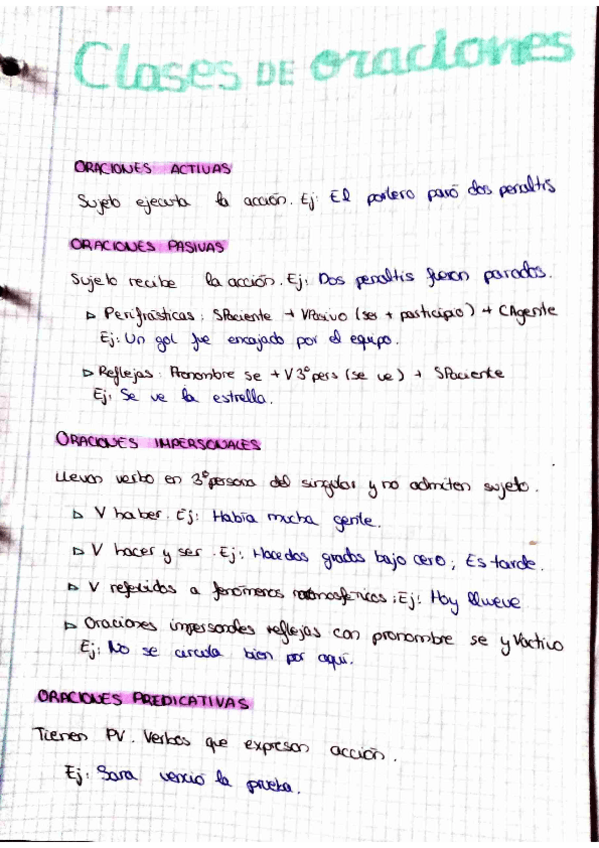 Clases DE oraciones
ORACIONES ACTIVAS
Sujeto ejecuta la acción. Ej: El portero paró dos penaltis
ORACIONES PASIVAS
Sujeto recibe la acción. Ej: Dos penaltis fueron parados.
▷ Perifrásticas: SPaciente + VPasivo (ser + participio) + CAgente
Ej: Un gol fue encajado por el equipo.
▷ Reflejas: Pronombre se + V 3º pers (se ve) + SPaciente
Ej: Se ve la estrella.
ORACIONES IMPERSONALES
Llevan verbo en 3º persona del singular y no admiten sujeto.
▷ V haber. Ej: Había mucha gente.
▷ V hacer y ser. Ej: Hace dos grados bajo cero; Es tarde.
▷ V referidos a fenómenos atmosféricos; Ej: Hoy llueve
▷ Oraciones impersonales reflejas con pronombre se y Vactivo
Ej: No se circula bien por aquí.
ORACIONES PREDICATIVAS
Tienen PV. Verbos que expresan acción.
Ej: Sara venció la prueba.